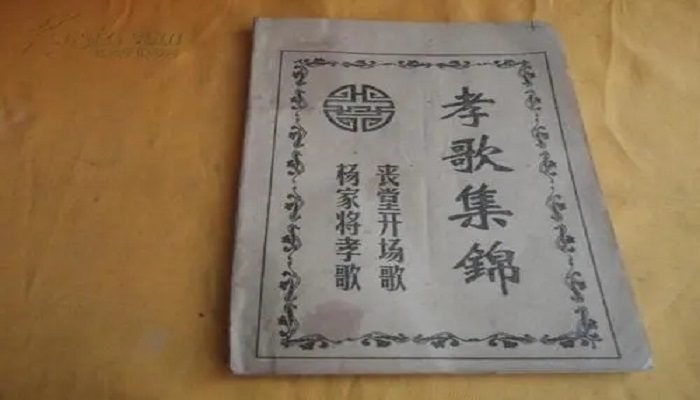 孝歌集錦
丧堂开场歌
杨家将孝歌